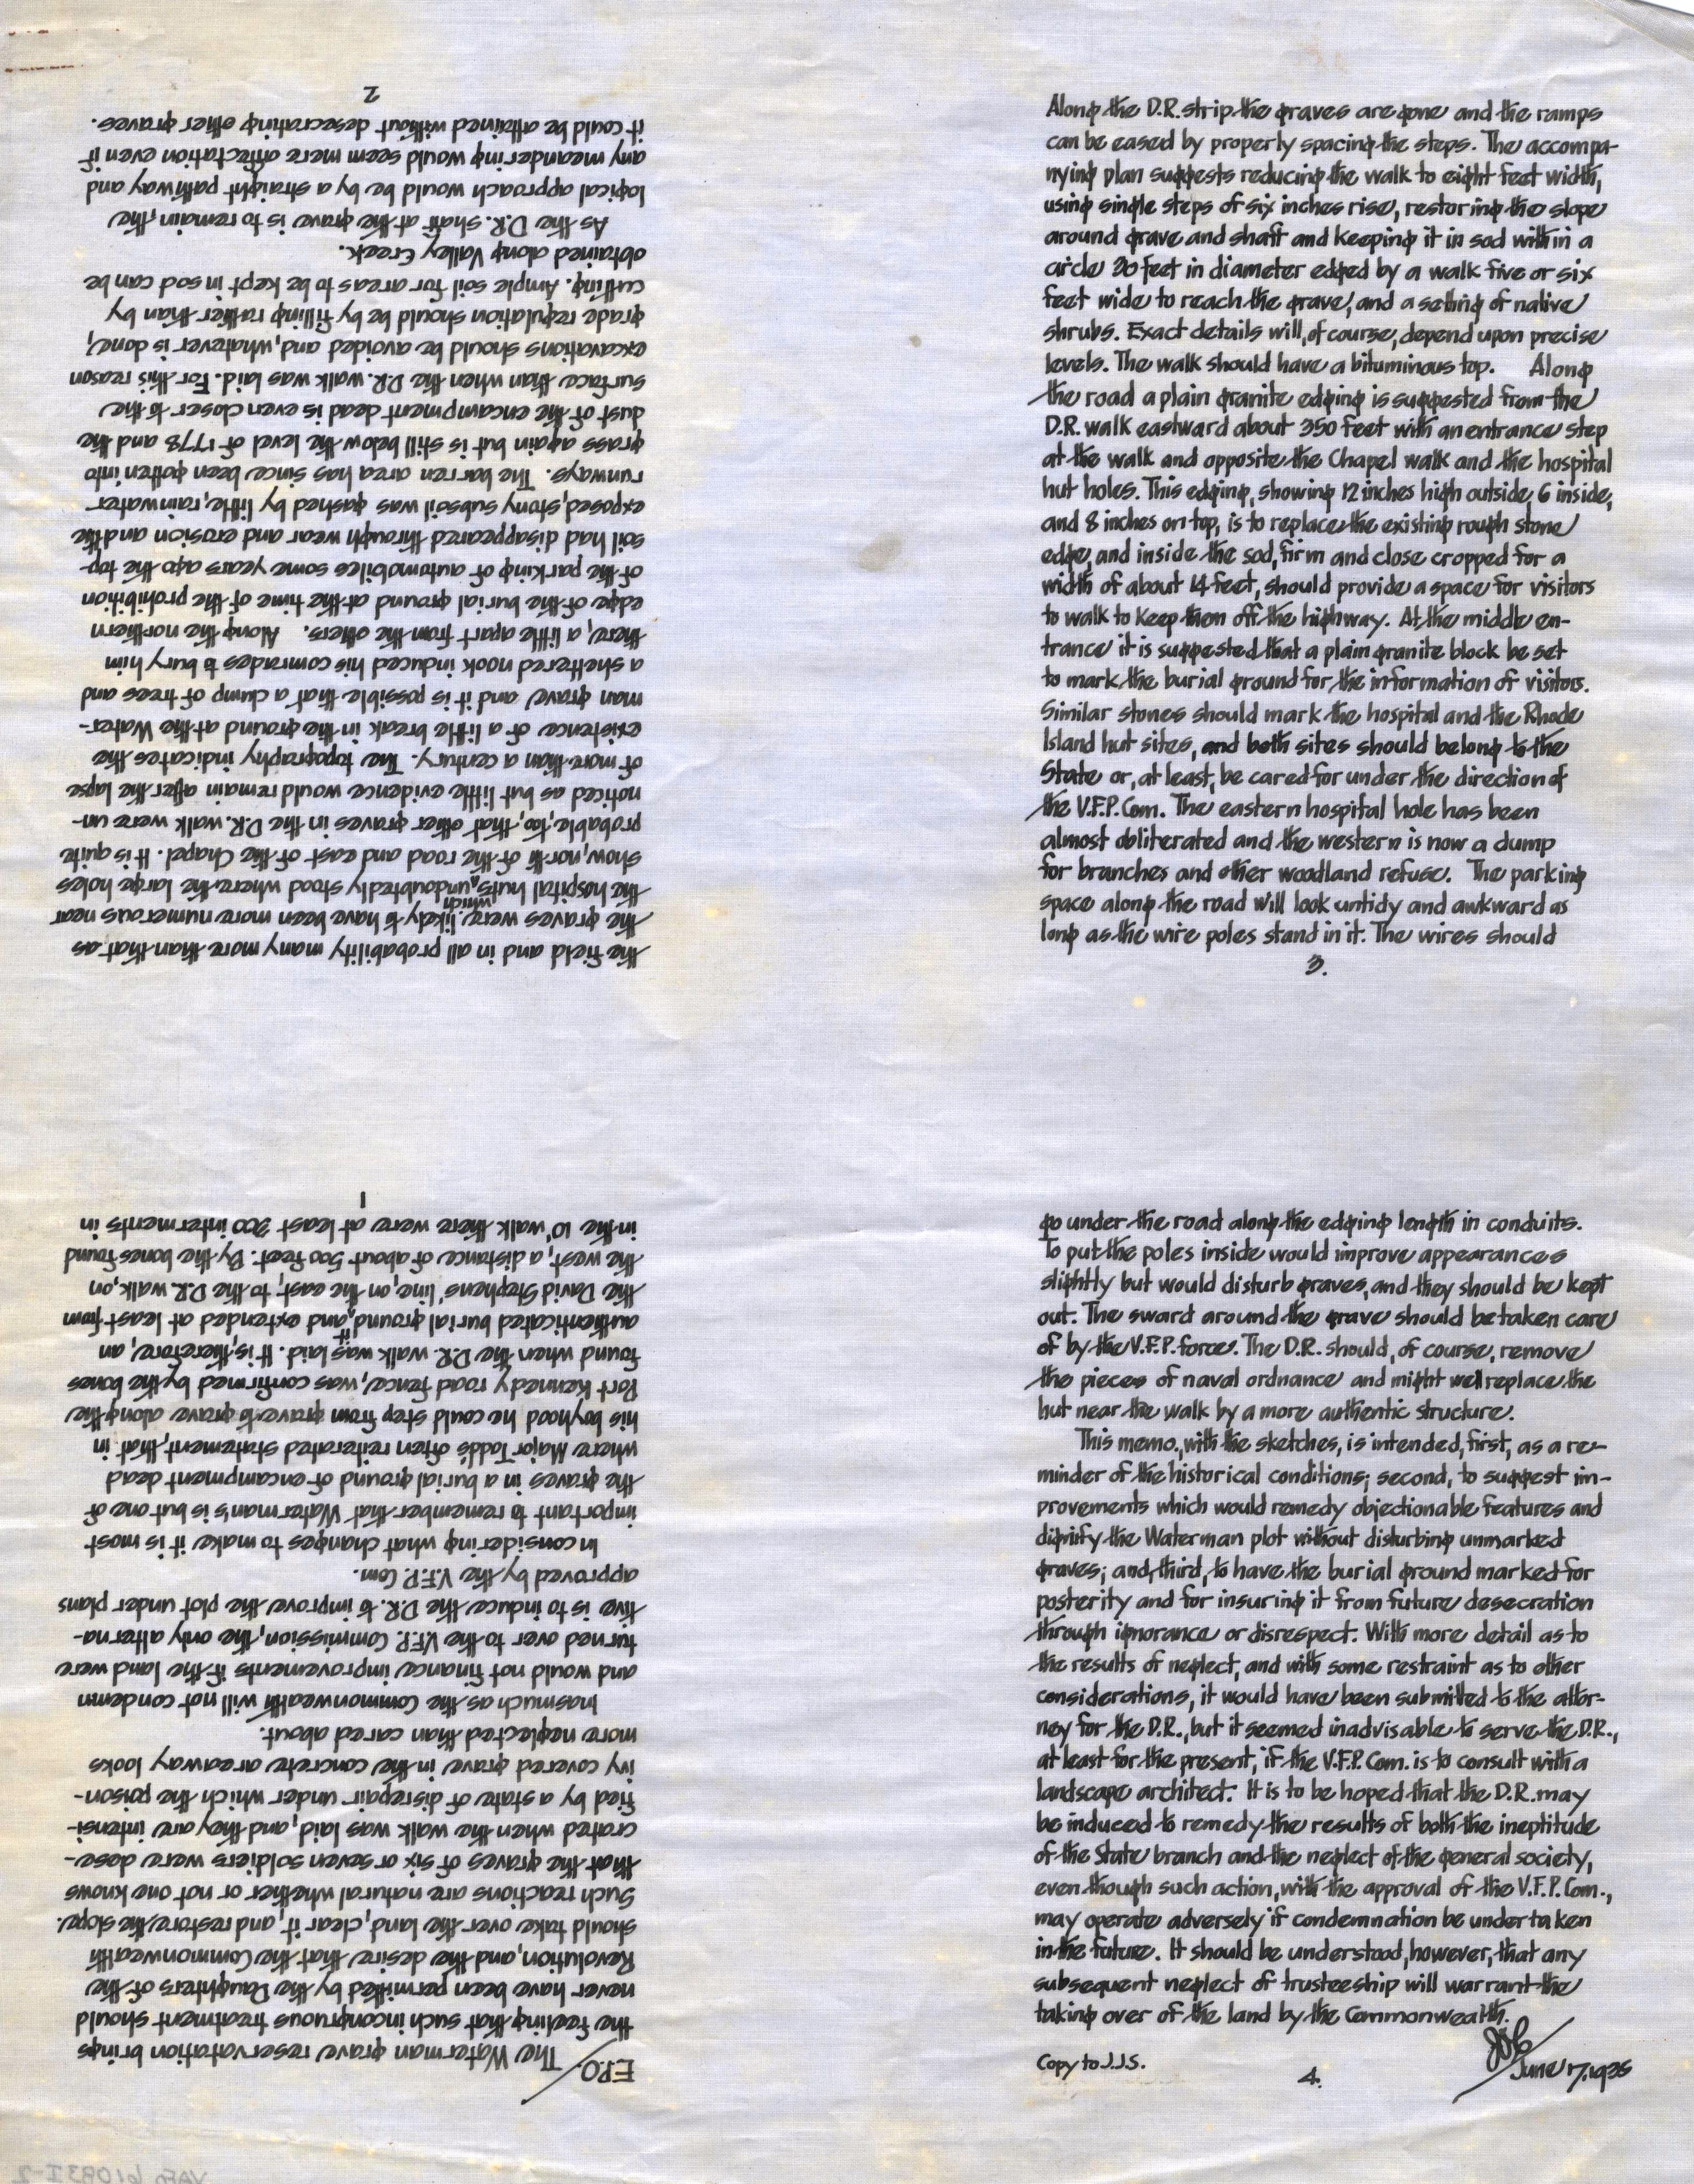 E.P.O.
The Waterman grave reservatation brings
the feeling that such incongruous treatment should
never have been permitted by the Daughters of the
Revolution, and the desire that the Commonwealth
should take over the land, clear it, and restore the slope.
Such reactions are natural whether or not one knows
that the graves of six or seven soldiers were dese-
crated when the walk was laid, and they are intensi-
fied by a state of disrepair under which the poison-
ivy covered grave in the concrete areaway looks
more neglected than cared about.
Inasmuch as the Commonwealth will not condemn
and would not finance improvements if the land were
turned over to the V.F.P. Commission, the only alterna-
tive is to induce the D.R. to improve the plot under plans
approved by the V.F.P. Com.
In considering what changes to make it is most
important to remember that Waterman's is but one of
the graves in a burial ground of encampment dead
where Major Todd's often reiterated statement, that in
his boyhood he could step from grave to grave along the
Port Kennedy road fence, was confirmed by the bones
found when the D.R. walk was laid. It is, therefore, an
authenticated burial ground, and it extended at least from
the David Stephens' line, on the east, to the D.R. walk, on
the west, a distance of about 500 feet. By the bones found
in the 10' walk there were at least 300 interments in
1
the field and in all probability many more than that as
the graves were likely to have been more numerous near
the hospital huts, which undoubtedly stood where the large holes
show, north of the road and east of the Chapel. It is quite
probable, too, that other graves in the D.R. walk were un-
noticed as but little evidence would remain after the lapse
of more than a century. The topography indicates the
existence of a little break in the ground at the Water-
man grave and it is possible that a clump of trees and
a sheltered nook induced his comrades to bury him
there, a little apart from the others. Along the northern
edge of the burial ground at the time of the prohibition
of the parking of automobiles some years ago the top-
soil had disappeared through wear and erosion and the
exposed, stony subsoil was gashed by little, rainwater
runways. The barren area has since been gotten into
grass again but is still below the level of 1778 and the
dust of the encampment dead is even closer to the
surface than when the D.R. walk was laid. For this reason
excavations should be avoided and, whatever is done,
grade regulation should be by filling rather than by
cutting. Ample soil for areas to be kept in sod can be
obtained along Valley Creek.
As the D.R. shaft at the grave is to remain, the
logical approach would be by a straight pathway and
any meandering would seem mere affectation even if
it could be attained without desecrating other graves.
2
Along the D.R. strip the graves are gone and the ramps
can be eased by properly spacing the steps. The accompa-
nying plan suggests reducing the walk to eight feet width,
using single steps of six inches rise, restoring the slope
around grave and shaft and keeping it in sod within a
circle 20 feet in diameter edged by a walk five or six
feet wide to reach the grave, and a setting of native
shrubs. Exact details will, of course, depend upon precise
levels. The walk should have a bituminous top. Along
the road a plain granite edging is suggested from the
D.R. walk eastward about 350 feet with an entrance step
at the walk and opposite the Chapel walk and the hospital
hut holes. This edging, showing 12 inches high outside, 6 inside,
and 8 inches on top, is to replace the existing rough stone
edge, and inside the sod, firm and close cropped for a
width of about 14 feet, should provide a space for visitors
to walk to keep them off the highway. At the middle en-
trance it is suggested that a plain granite block be set
to mark the burial ground for the information of visitors.
Similar stones should mark the hospital and the Rhode
Island hut sites, and both sites should belong to the
State or, at least, be cared for under the direction of
the V.F.P. Com. The eastern hospital hole has been
almost obliterated and the western is now a dump
for branches and other woodland refuse. The parking
space along the road will look untidy and awkward as
long as the wire poles stand in it. The wires should
3.
go under the road along the edging length in conduits.
To put the poles inside would improve appearances
slightly but would disturb graves, and they should be kept
out. The sward around the grave should be taken care
of by the V.F.P. force. The D.R. should, of course, remove
the pieces of naval ordnance and might well replace the
hut near the walk by a more authentic structure.
This memo., with the sketches, is intended, first, as a re-
minder of the historical conditions; second, to suggest im-
provements which would remedy objectionable features and
dignify the Waterman plot without disturbing unmarked
graves; and, third, to have the burial ground marked for
posterity and for insuring it from future desecration
through ignorance or disrespect. With more detail as to
the results of neglect, and with some restraint as to other
considerations, it would have been submitted to the attor-
ney for the D.R., but it seemed inadvisable to serve the D.R.,
at least for the present, if the V.F.P. Com. is to consult with a
landscape architect. It is to be hoped that the D.R. may
be induced to remedy the results of both the ineptitude
of the State branch and the neglect of the general society,
even though such action, with the approval of the V.F.P. Com.,
may operate adversely if condemnation be undertaken
in the future. It should be understood, however, that any
subsequent neglect of trusteeship will warrant the
taking over of the land by the Commonwealth.
Copy to J.J.S.
June 17, 1935
4.